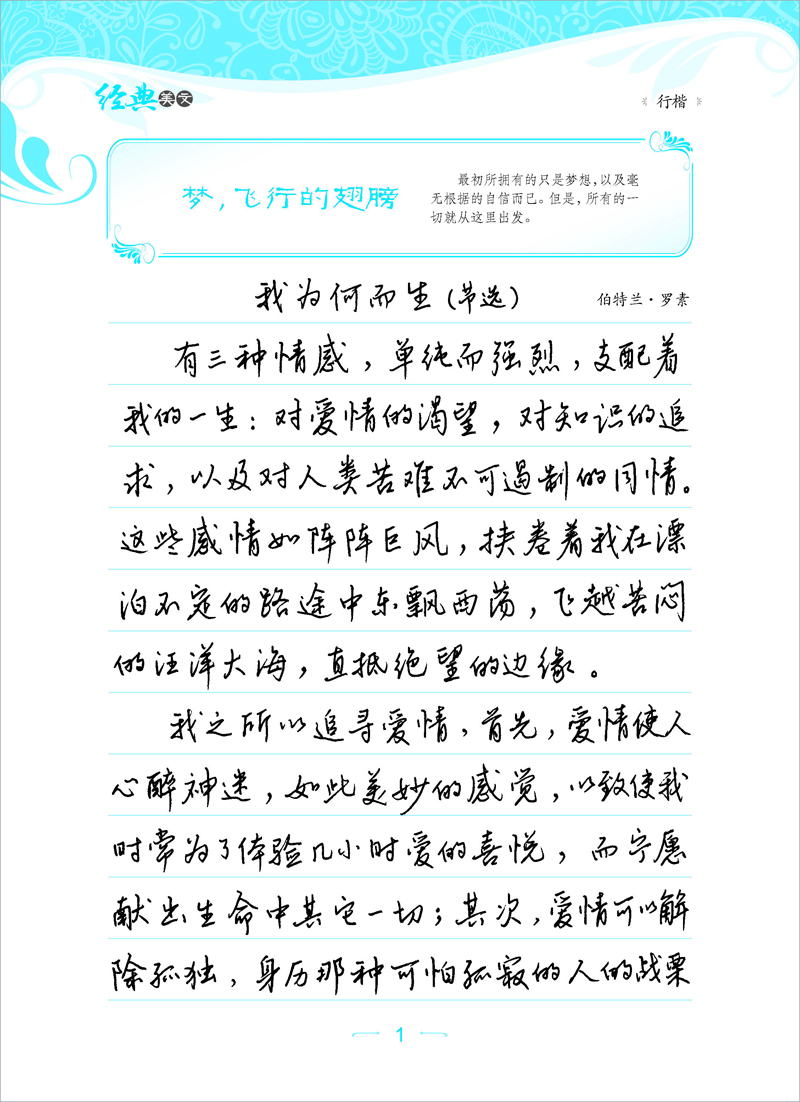 经典美文
《行楷》
梦，飞行的翅膀
最初所拥有的只是梦想，以及毫
无根据的自信而已。但是，所有的一
切就从这里出发。
我为何而生（节选）
伯特兰·罗素
有三种情感，单纯而强烈，支配着
我的一生：对爱情的渴望，对知识的追
求，以及对人类苦难不可遏制的同情。
这些感情如阵阵巨风，挟卷着我在漂
泊不定的路途中东飘西荡，飞越苦闷
的汪洋大海，直抵绝望的边缘。
我之所以追寻爱情，首先，爱情使人
心醉神迷，如此美妙的感觉，以致使我
时常为了体验几小时爱的喜悦，而宁愿
献出生命中其它一切；其次，爱情可以解
除孤独，身历那种可怕孤寂的人的战栗
1